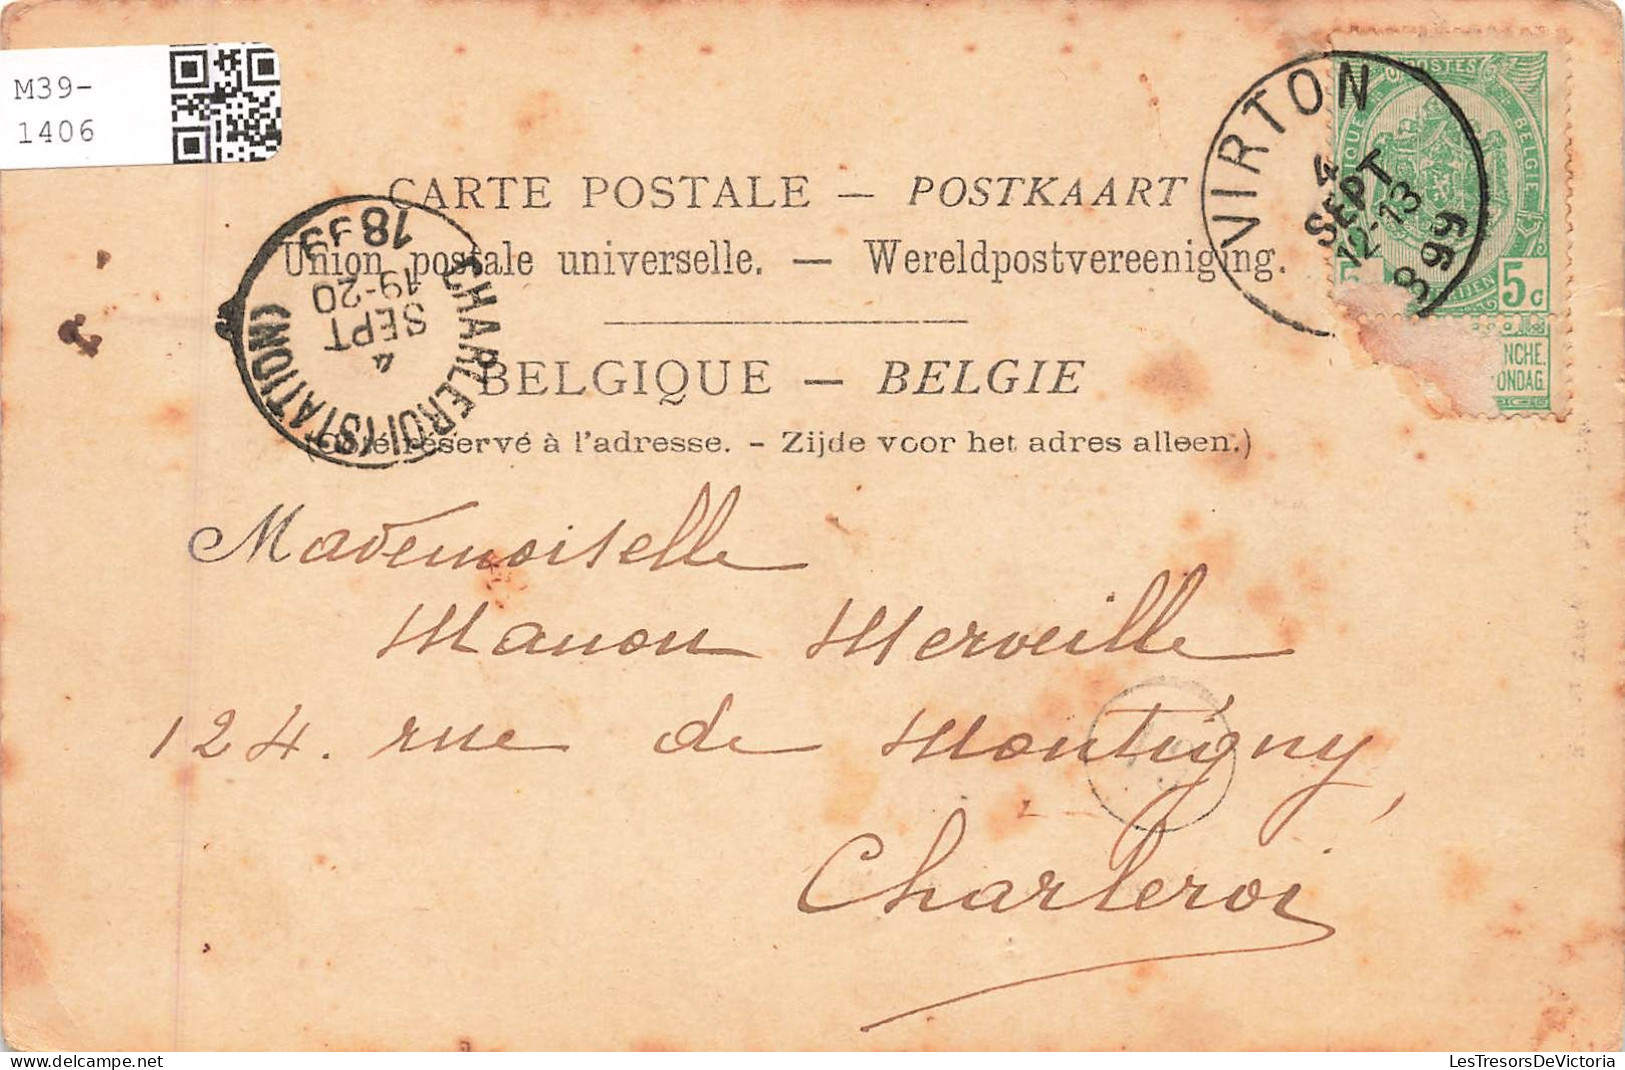 M39-
1406
CARTE POSTALE — POSTKAART
Union postale universelle. — Wereldpostvereeniging.
BELGIQUE — BELGIE
(Côté réservé à l'adresse. - Zijde voor het adres alleen.)
VIRTON
4
SEPT
12-13
1899
POSTES
BELGIQUE
BELGIE
5c
NCHE.
ONDAG
CHARLEROI (STATION)
4
SEPT
19-20
1899
Mademoiselle
Manon Merveille
124. rue de Montigny,
Charleroi
LesTresorsDeVictoria